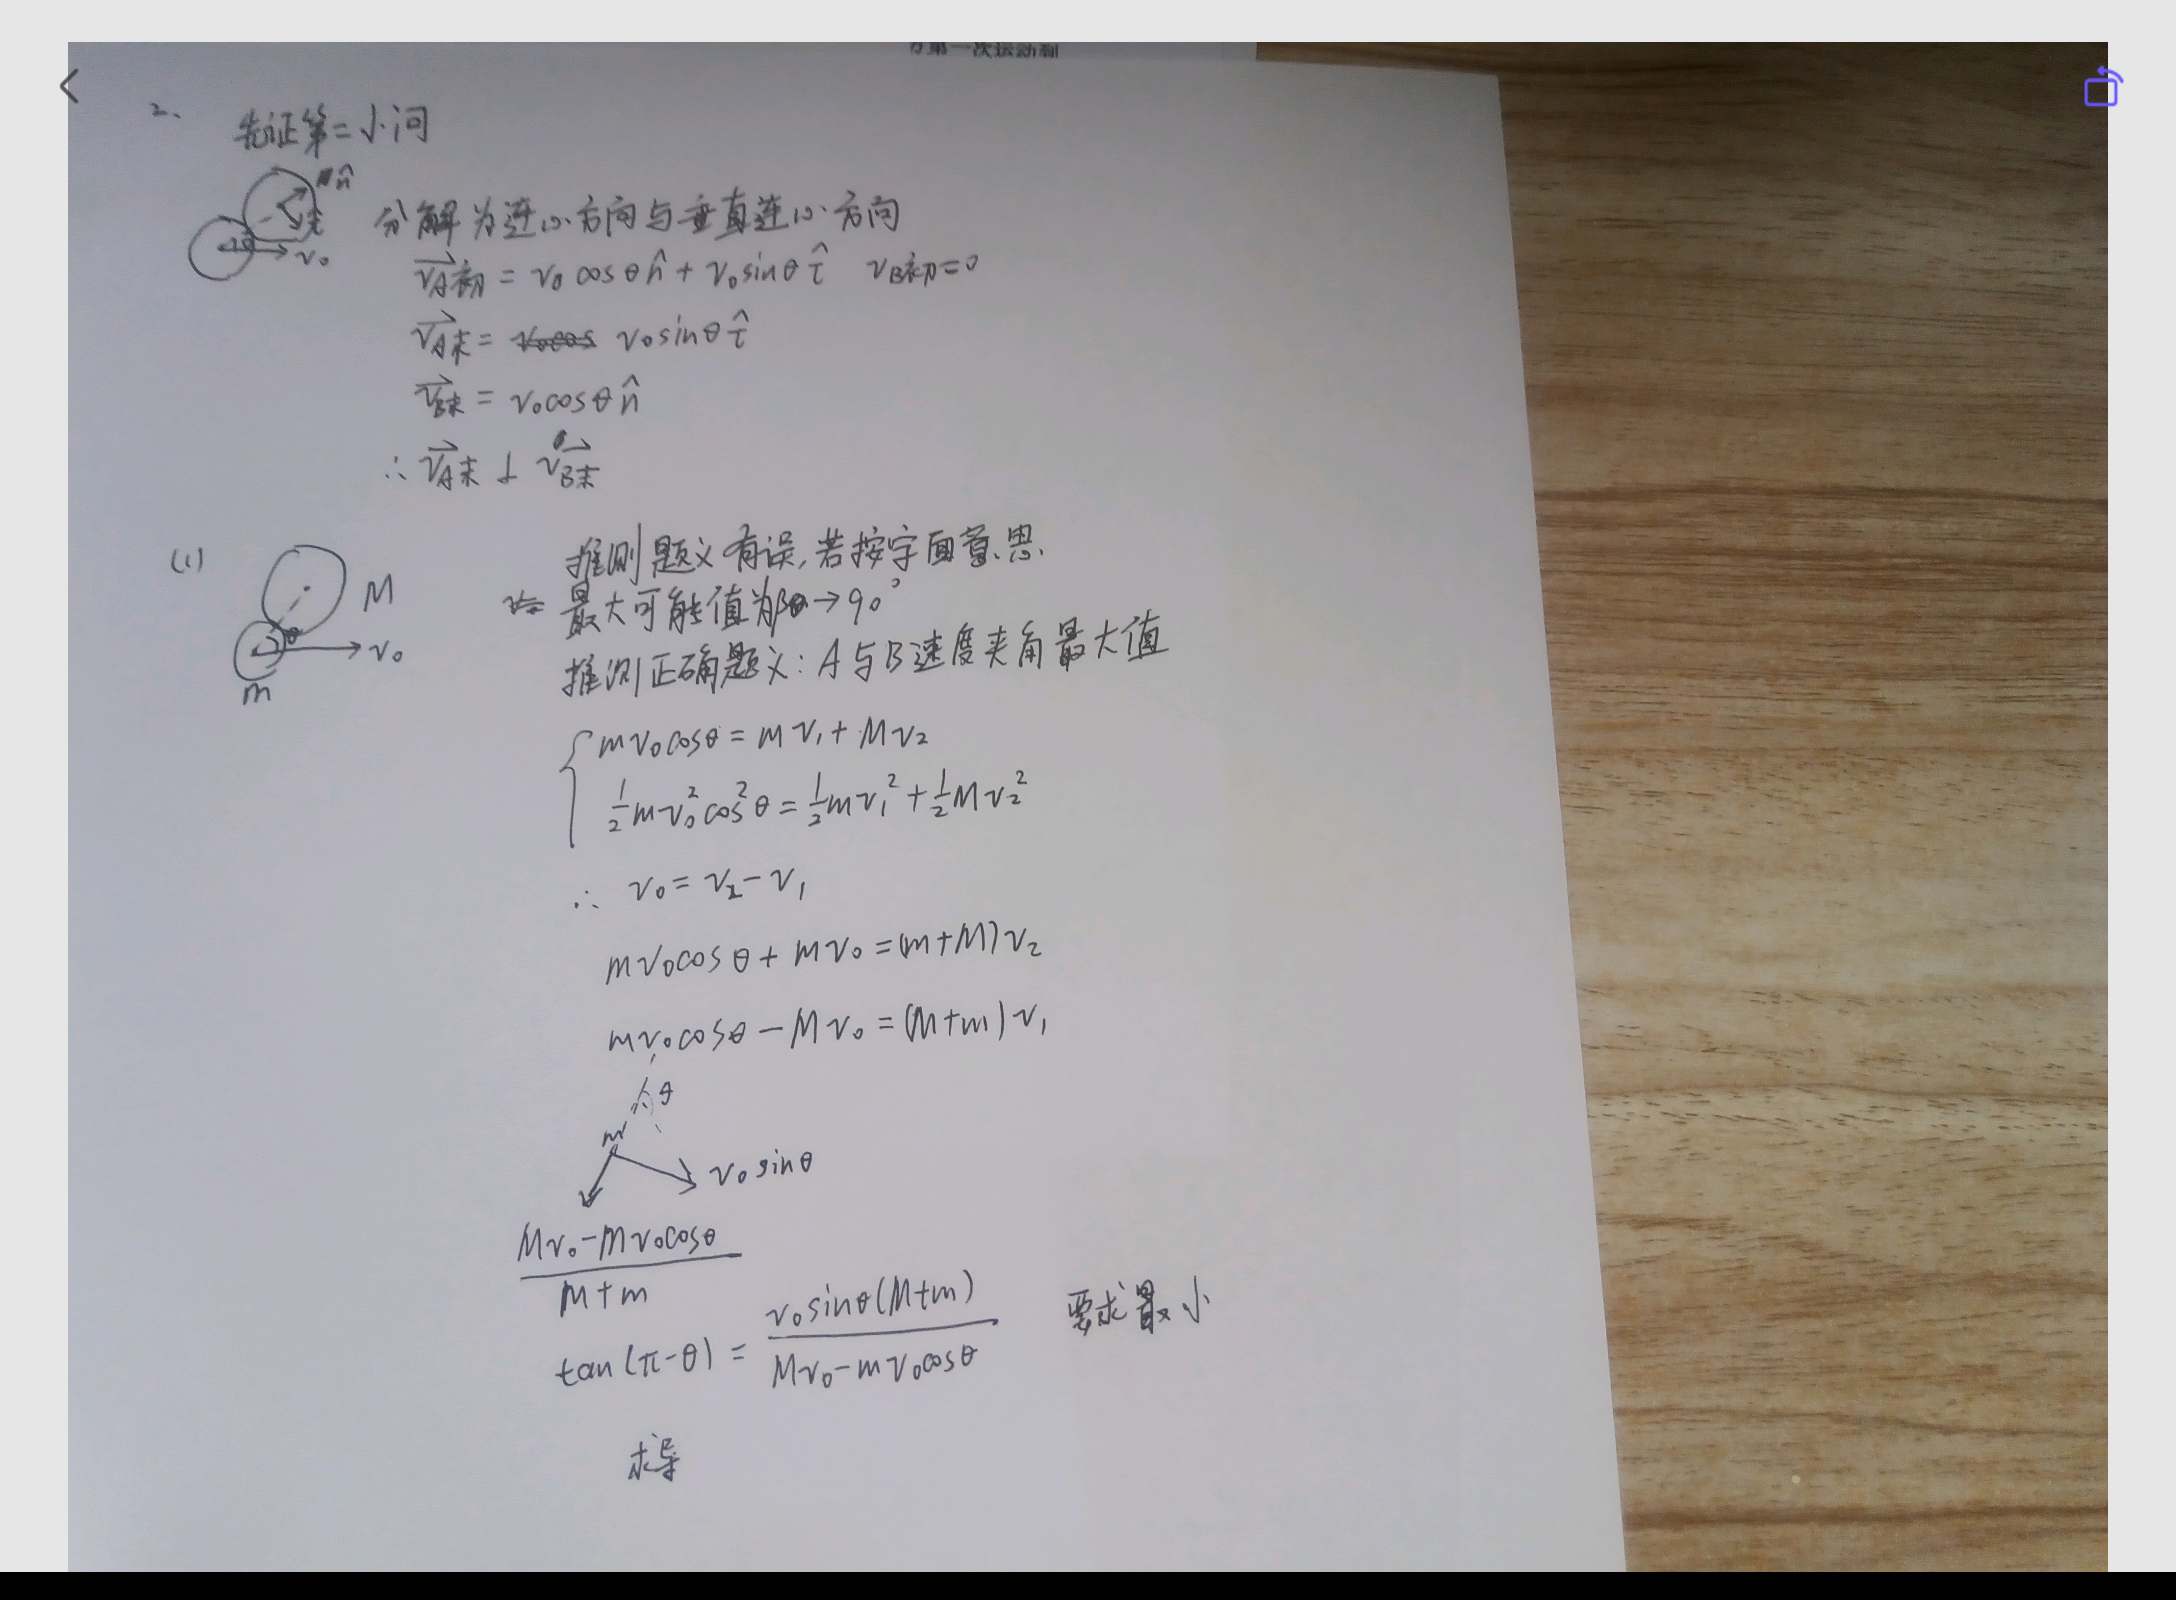 方第一次运动到
2、 先证第二小问
n̂
τ̂
θ
v₀
分解为连心方向与垂直连心方向
v⃗A初 = v₀ cosθ n̂ + v₀ sinθ τ̂   vB初=0
v⃗A末 = v₀sinθ τ̂
v⃗B末 = v₀cosθ n̂
∴ v⃗A末 ⊥ v⃗B末
(1)
M
θ
v₀
m
推测题义有误,若按字面意思
最大可能值为θ→90°
推测正确题义: A与B速度夹角最大值
mv₀cosθ = mv₁ + Mv₂
½mv₀²cos²θ = ½mv₁² + ½Mv₂²
∴ v₀ = v₂ - v₁
mv₀cosθ + mv₀ = (m+M)v₂
mv₀cosθ - Mv₀ = (M+m)v₁
θ
m
v₀ sinθ
(Mv₀ - mv₀cosθ)/(M+m)
tan(π-θ) = v₀sinθ(M+m)/(Mv₀ - mv₀cosθ)   要求最小
求导